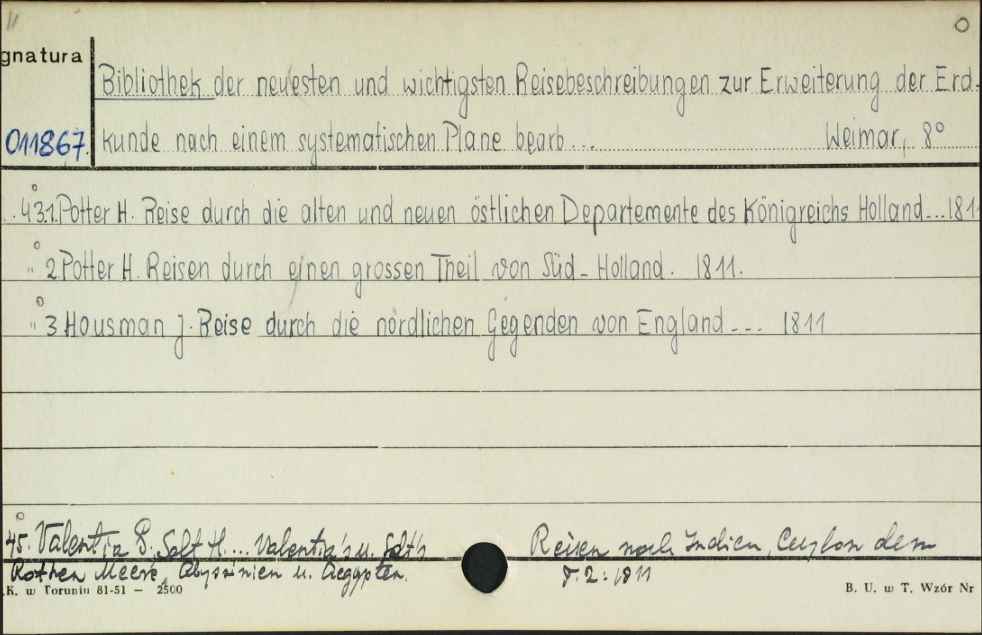 gnatura
Bibliothek der neuesten und wichtigsten Reisebeschreibungen zur Erweiterung der Erd-
011867. kunde nach einem systematischen Plane bearb... Weimar, 8°
43.1. Potter H. Reise durch die alten und neuen östlichen Departemente des Königreichs Holland...1811
" 2 Potter H. Reisen durch einen grossen Theil von Süd-Holland. 1811.
" 3 Housman J. Reise durch die nördlichen Gegenden von England... 1811
45. Valentia G. Salt H.... Valentia's u. Salt's Reisen nach Indien, Ceylon dem
Rothen Meere, Abyssinien u. Aegypten. T. 2: 1811
.K. w Toruniu 81-51 — 2500 B. U. w T. Wzór Nr